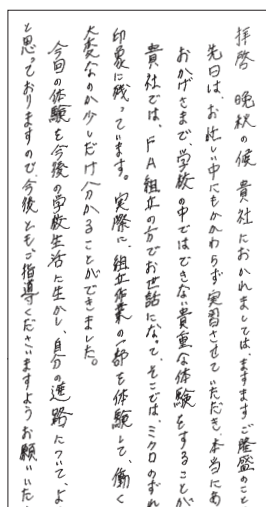 拝啓　晩秋の候　貴社におかれましては、ますますご隆盛のこと
先日は、お忙しい中にもかかわらず実習させていただき、本当にあ
おかげさまで、学校の中ではできない貴重な体験をすることが
貴社では、FA組立の方でお世話になって、そこでは、ミクロのずれ
印象に残っています。実際に、組立作業の一部を体験して、働く
大変なのか少しだけ分かることができました。
今回の体験を今後の学校生活に生かし、自分の進路について、よ
と思っておりますので、今後ともご指導くださいますようお願いいた